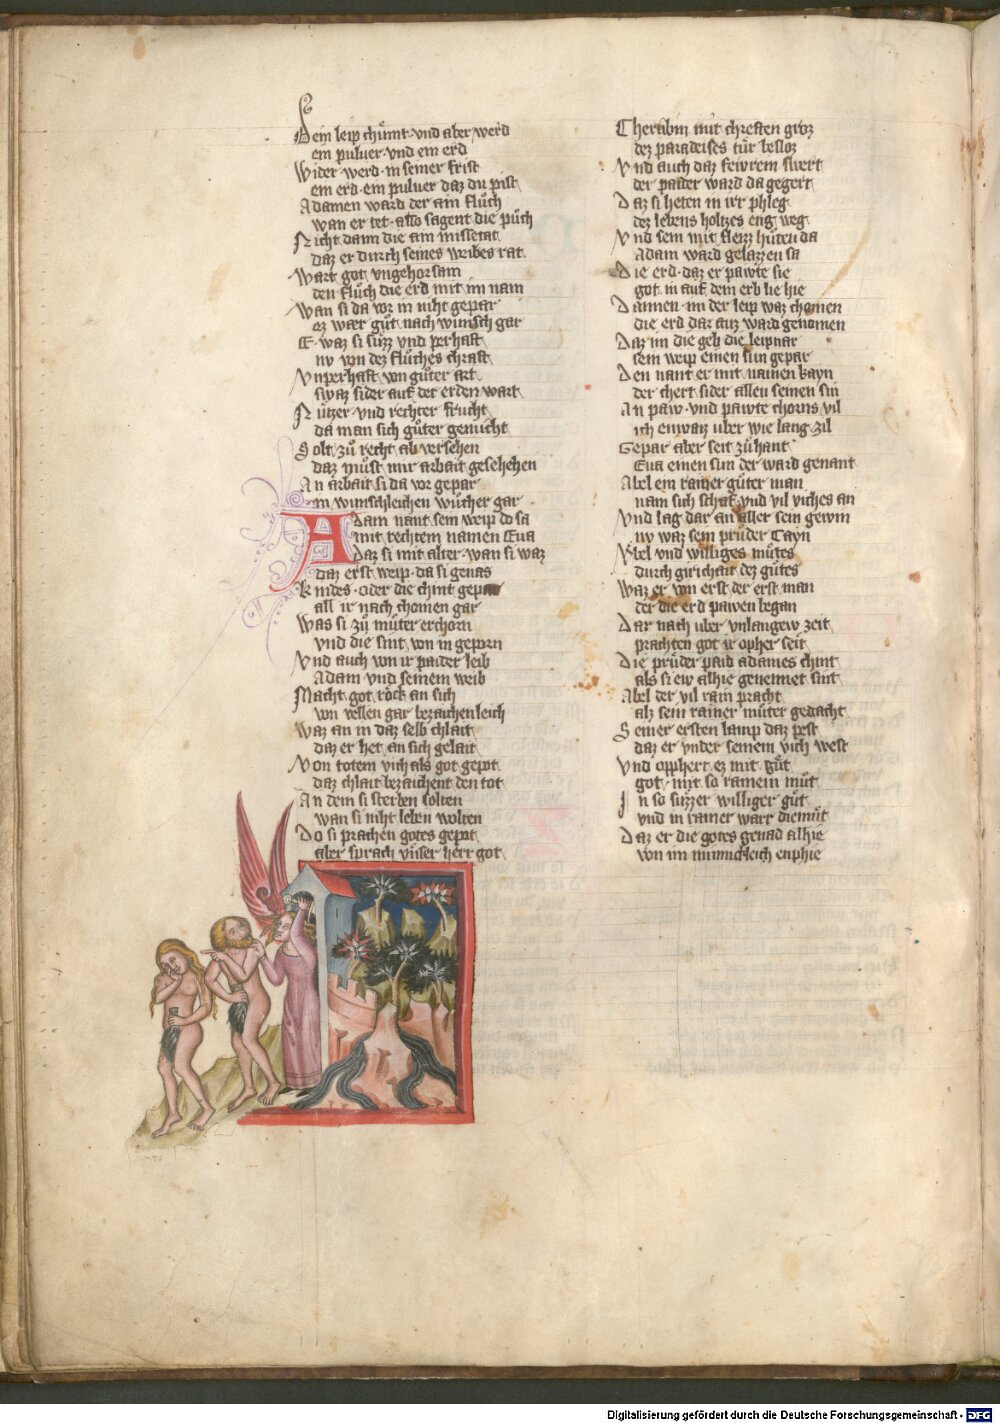 Dein leip chumt und aber werd
ein puluer und ein erd
Wider werd in seiner frist
ein erd ein puluer daz du pist
Adamen ward der ain flůch
wan er tet also sagent die půch
Nicht dann die ain missetat
daz er durch seines weibes rat
Wart got ungehorsam
den flůch die erd mit im nam
Wan si da vor in niht gepar
ez wær gůt nach wunsch gar
E waz si sůzz vnd perhaft
nv von dez flůches chraft
Vnperhaft von gůter art
swaz sider auf der erden wart
Nůtzer vnd rechter frucht
da man sich gůter genucht
Solt zů recht ab versehen
daz můst mir arbait geschehen
An arbait si da vor gepar
in wunschleichen wůcher gar
Adam nant sein weip do sa
mit rechtem namen Eua
Daz si mit alter wan si waz
daz erst weip da si genas
Kindes oder die chint gepar
all ir nach chomen gar
Was si zů můter erchorn
vnd die sint von in geporn
Vnd auch von ir paider leib
Adam vnd seinem weib
Macht got röck an sich
von vellen gar bezaichenleich
Waz an in daz selb chlait
daz er het an sich gelait
Von totem vich als got gepot
daz chlait bezaichent den tot
An dem si sterben solten
wan si niht leben wolten
Do si prachen gotes gepot
aber sprach vnser herr got
Cherubin mit chreften groz
dez paradeises tür besloz
Vnd auch daz fewrein swert
der paider ward da gegert
Daz si heten in irr phleg
dez lebens holtzes eng weg
Vnd sein mit fleizz hůten da
Adam ward gelazzen sa
Die erd daz er pawte sie
got in auf dem erb lie hie
Dannen im der leip waz chomen
die erd dar auz ward genomen
Daz im die geb die leipnar
sein weip einen sun gepar
Den nant er mit namen kayn
der chert sider allen seinen sin
An paw vnd pawte chorns vil
ich enwaiz uber wie lang zil
Gepar aber seit zů hant
Eua einen sun der ward genant
Abel ein rainer gůter man
nam sich schaf vnd vil viches an
Vnd lag dar an aller sein gewin
nv waz sein průder Cayn
Vbel vnd williges můtes
durch girichait dez gůtes
Waz er von erst der erst man
der die erd pawen began
Dar nach uber vnlangew zeit
prachten got ir opher seit
Die průder paid adames chint
als si ew alhie genennet sint
Abel der vil rain pracht
alz sein rainer můter gedacht
Seiner ersten lamp daz pest
daz er vnder seinem vich west
Vnd opphert ez mit gůt
got mit so rainem můt
In so sůzzer williger gůt
vnd in rainer warr diemůt
Daz er die gotes genad alhie
von im minnichleich enphie
Digitalisierung gefördert durch die Deutsche Forschungsgemeinschaft - DFG